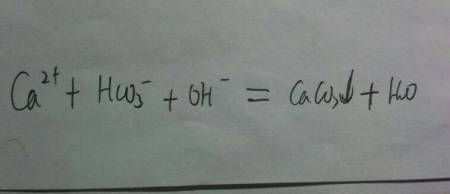 Ca²⁺ + HCO₃⁻ + OH⁻ = CaCO₃↓ + H₂O